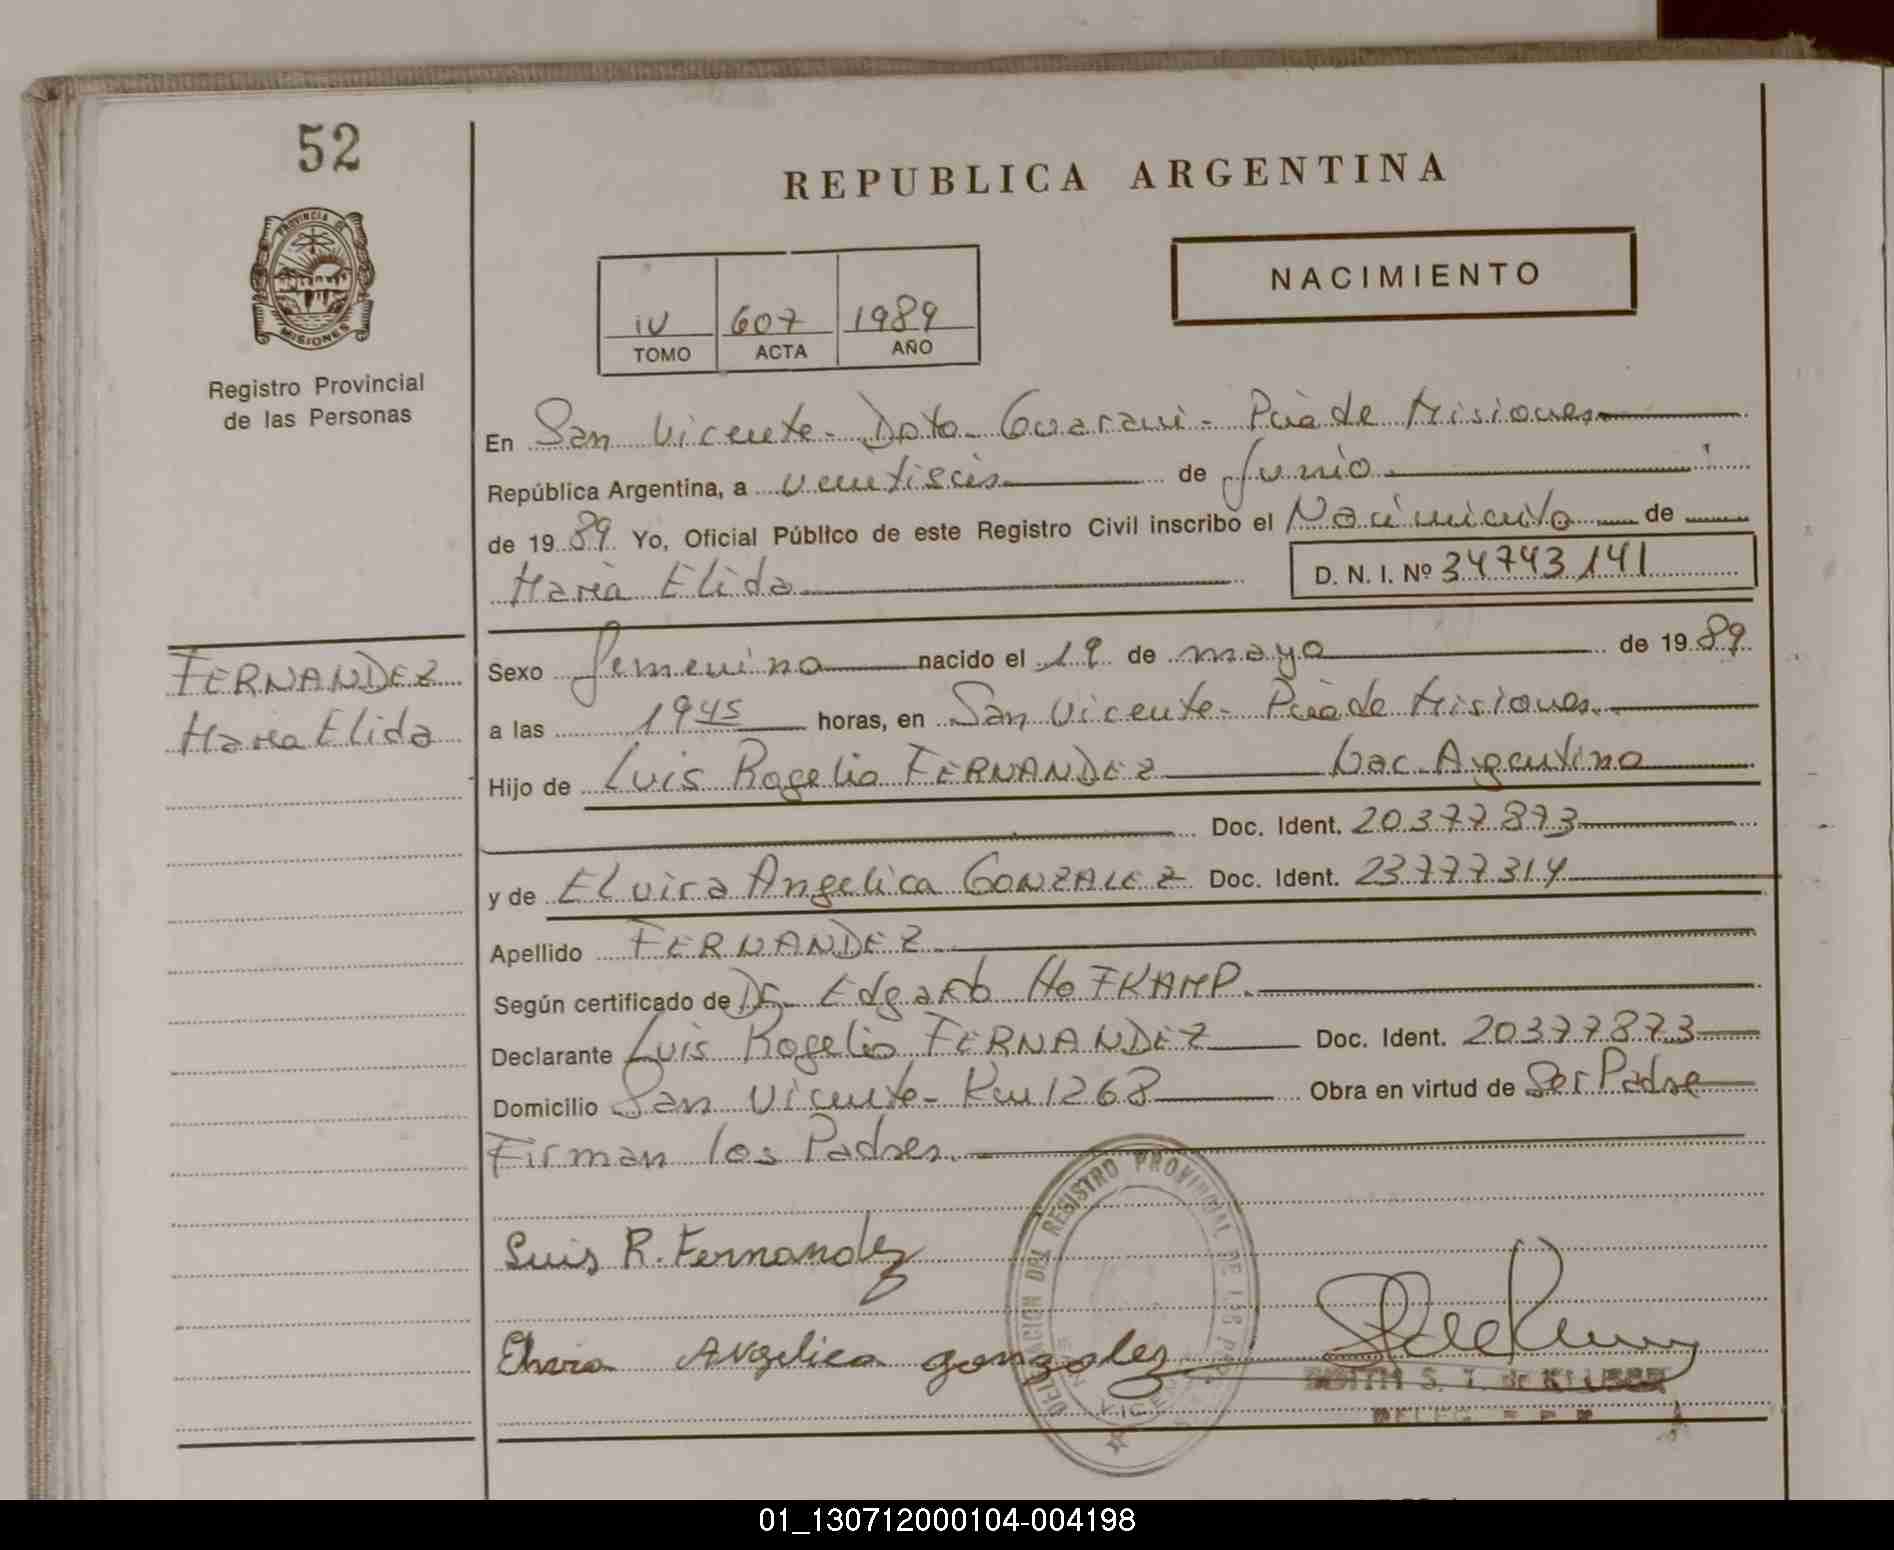 52
REPUBLICA ARGENTINA
PROVINCIA DE
MISIONES
Registro Provincial
de las Personas
NACIMIENTO
IV 607 1989
TOMO ACTA AÑO
En San Vicente - Dpto. Guarani - Pcia de Misiones
República Argentina, a veintiseis de Junio
de 1989 Yo, Oficial Público de este Registro Civil inscribo el Nacimiento de
Maria Elida D. N. I. Nº 34743141
FERNANDEZ
Maria Elida
Sexo femenino nacido el 19 de mayo de 1989
a las 1945 horas, en San Vicente - Pcia de Misiones.
Hijo de Luis Rogelio FERNANDEZ Nac. Argentina
Doc. Ident. 20377873
y de Elvira Angelica GONZALEZ Doc. Ident. 23777314
Apellido FERNANDEZ
Según certificado de Dr. Edgardo HOFKAMP.
Declarante Luis Rogelio FERNANDEZ Doc. Ident. 20377873
Domicilio San Vicente - Km 1268 Obra en virtud de Ser Padre
Firman los Padres.
DELEGACION DEL REGISTRO PROVINCIAL DE LAS
Luis R. Fernandez
Elvira Angelica gonzalez
EDITH S. T. de
01_130712000104-004198